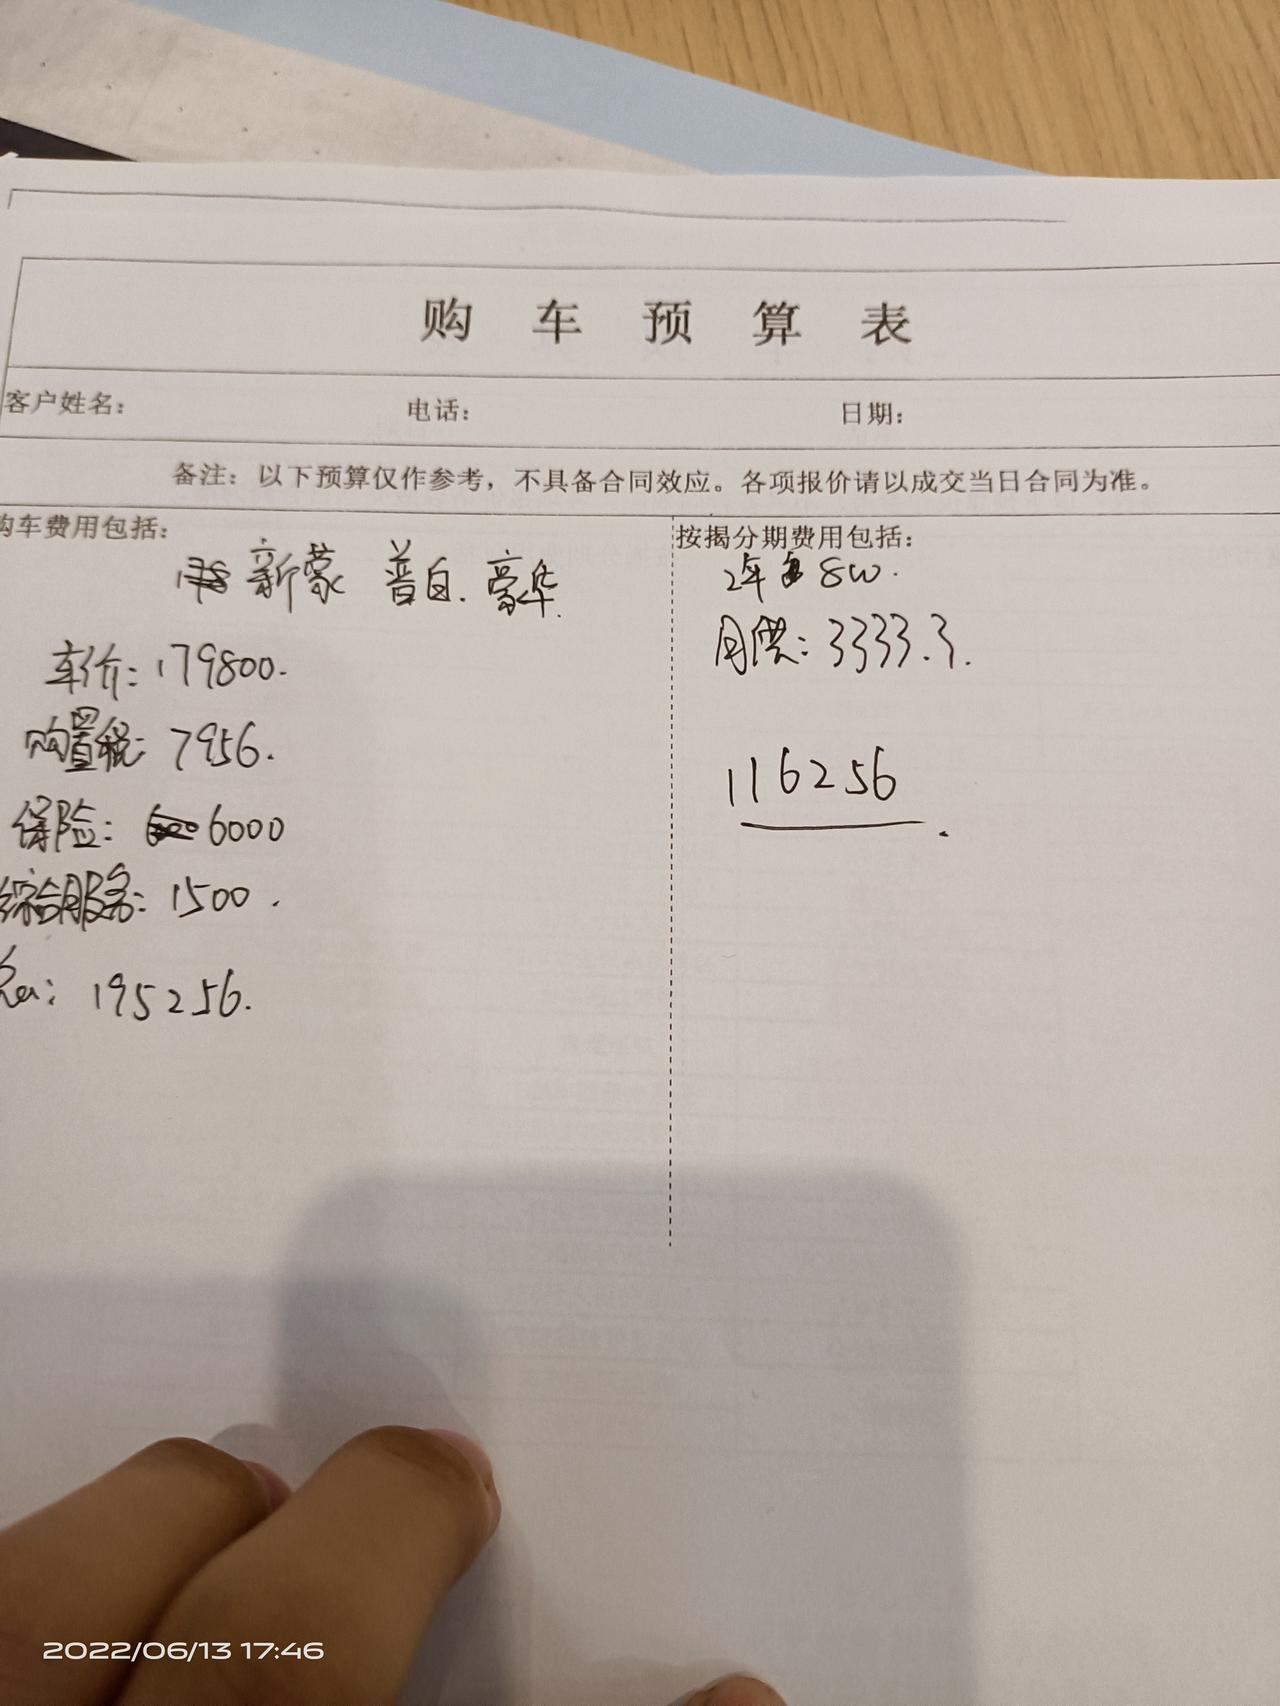 购车预算表
客户姓名： 电话： 日期：
备注：以下预算仅作参考，不具备合同效应。各项报价请以成交当日合同为准。
购车费用包括：
新蒙 普白. 豪华
车价：179800.
购置税：7956.
保险：6000
综合服务：1500.
195256.
按揭分期费用包括：
2年 8W.
月供：3333.3.
116256.
2022/06/13 17:46